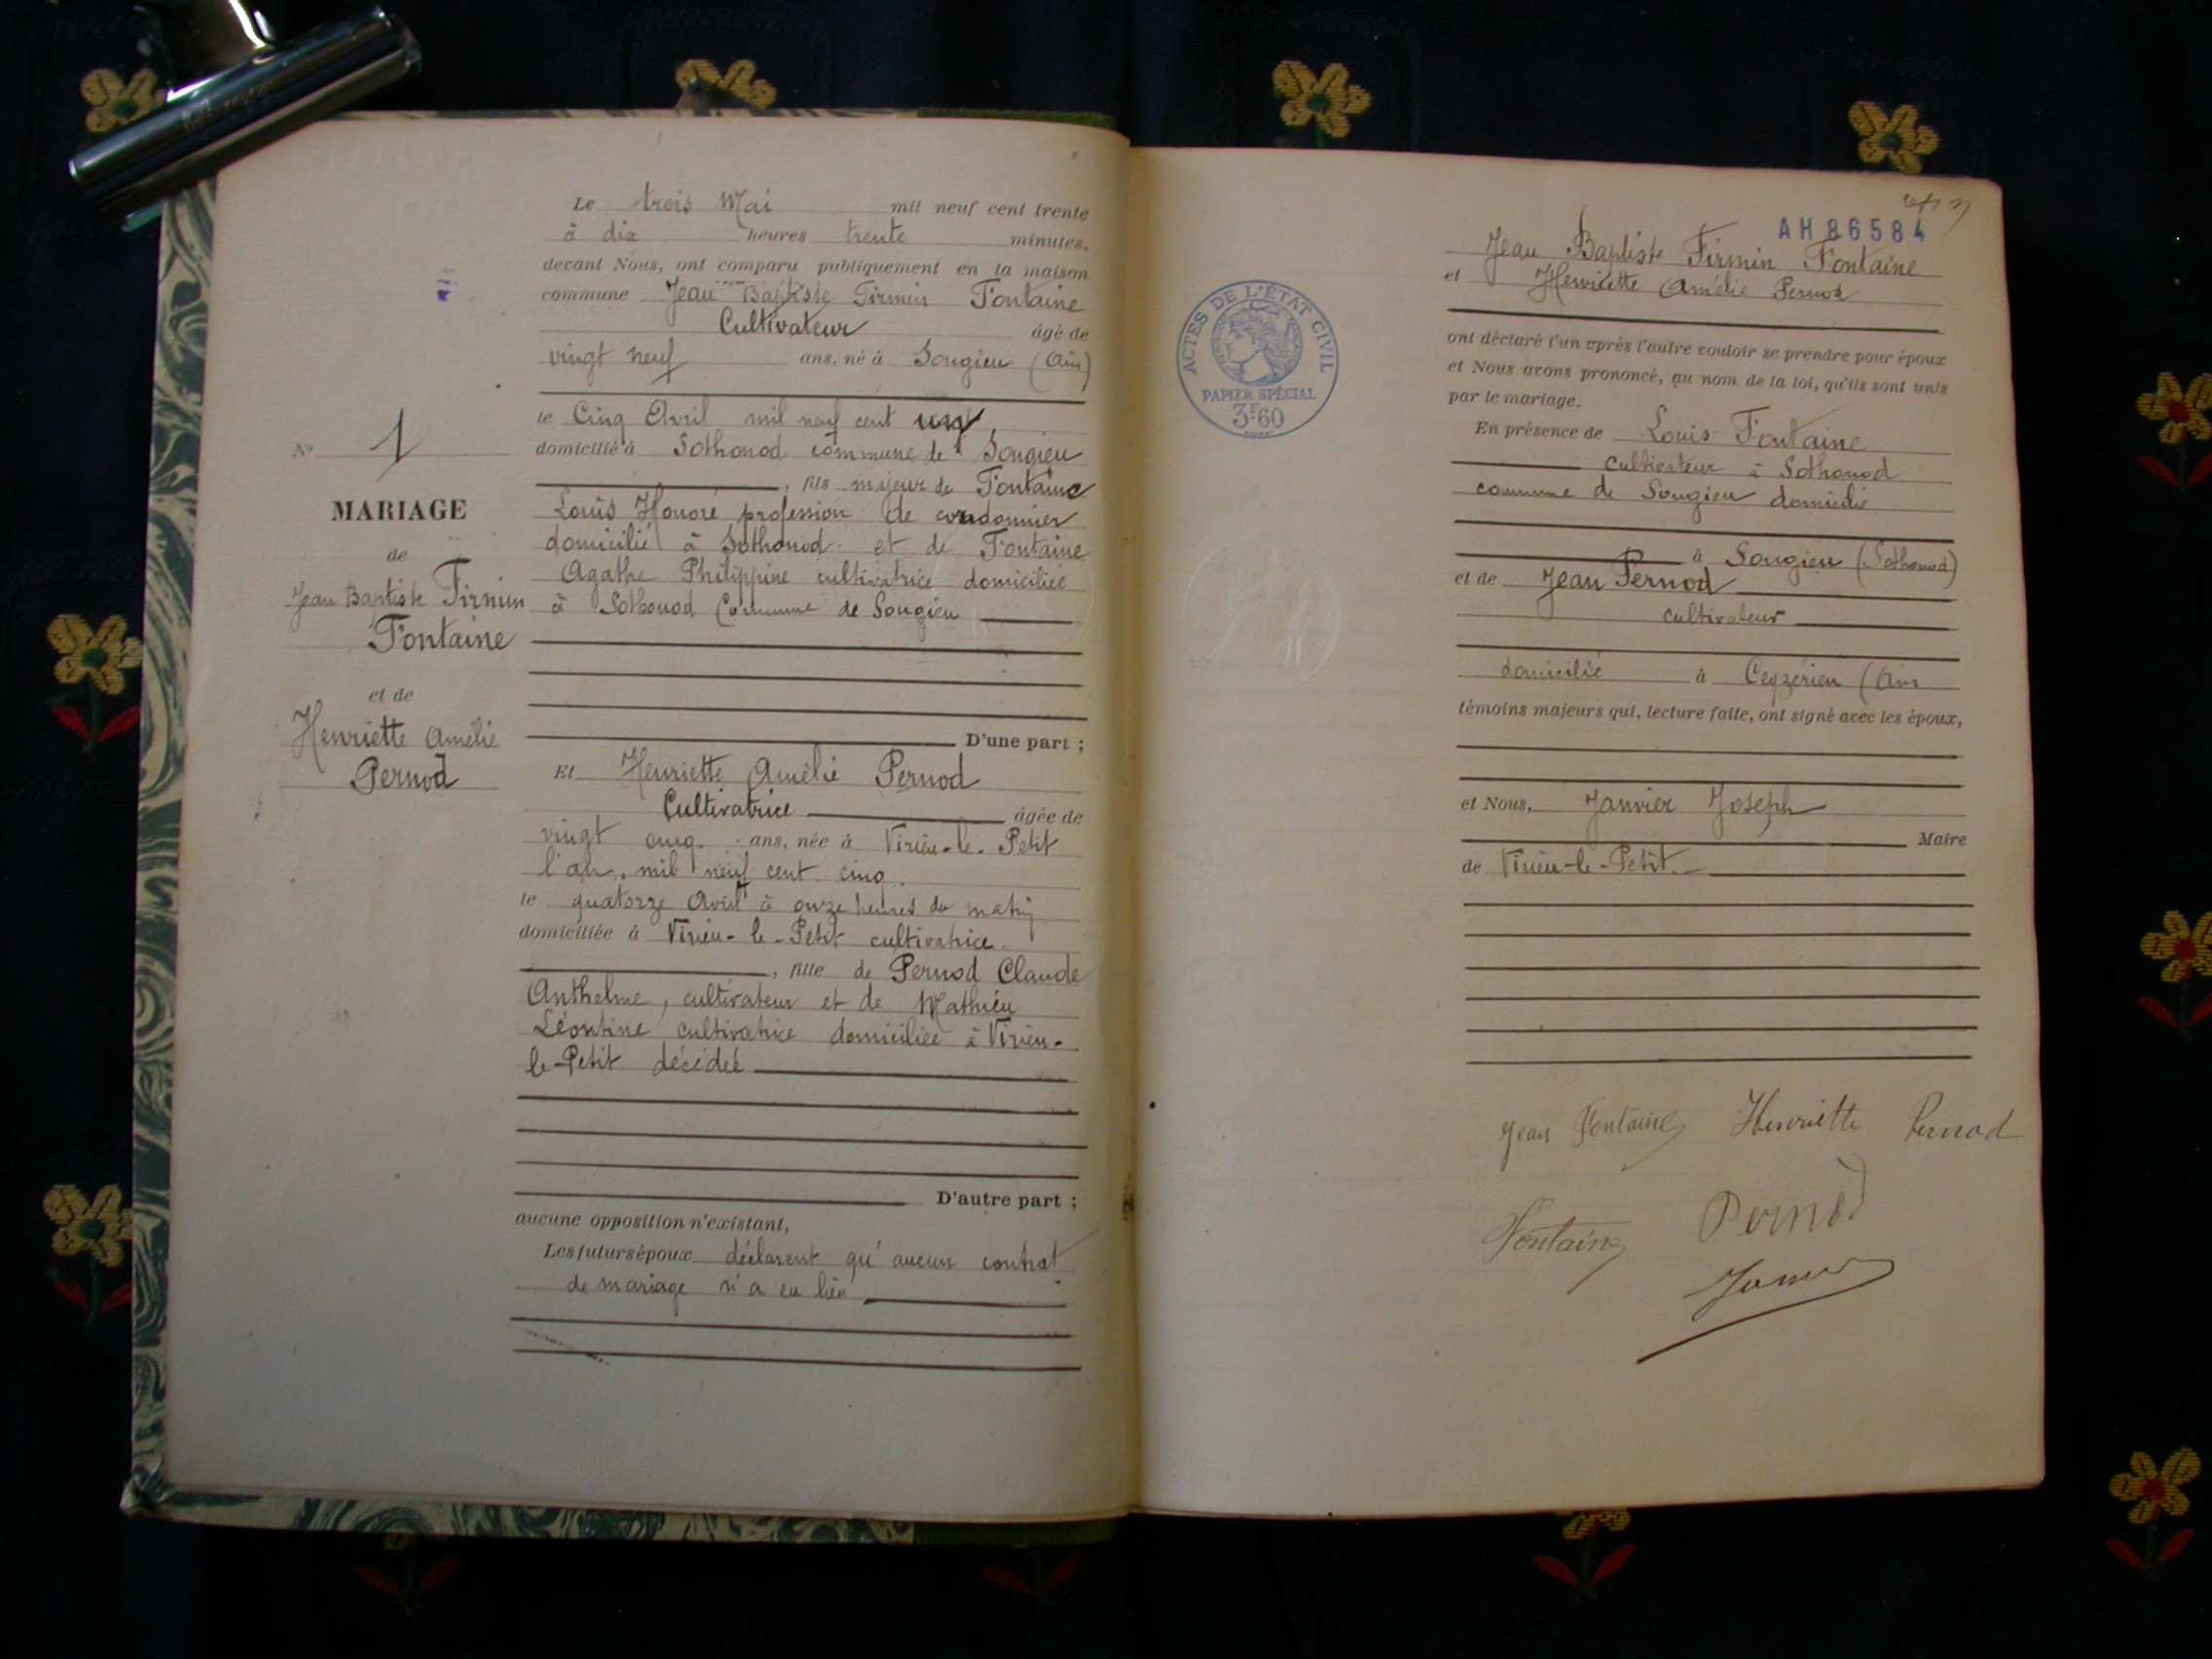 Le trois Mai mil neuf cent trente
à dix heures trente minutes,
devant Nous, ont comparu publiquement en la maison
commune Jean Baptiste Firmin Fontaine
Cultivateur âgé de
vingt neuf ans, né à Songieu (Ain)
le Cinq Avril mil neuf cent un
domicilié à Sothonod commune de Songieu
, fils majeur de Fontaine
Louis Honoré profession de cordonnier
domicilié à Sothonod et de Fontaine
Agathe Philippine cultivatrice domiciliée
à Sothonod Commune de Songieu
D'une part ;
Et Henriette Amélie Pernod
Cultivatrice âgée de
vingt cinq ans, née à Virieu-le-Petit
l'an mil neuf cent cinq
le quatorze Avril à onze heures du matin
domiciliée à Virieu-le-Petit cultivatrice.
, fille de Pernod Claude
Anthelme, cultivateur et de Mathieu
Léontine cultivatrice domiciliée à Virieu-
le-Petit décédée
D'autre part ;
aucune opposition n'existant,
Les futurs époux déclarent qu'aucun contrat
de mariage n'a eu lieu
N° 1
MARIAGE
de
Jean Baptiste Firmin
Fontaine
et de
Henriette Amélie
Pernod
AH 86584
Jean Baptiste Firmin Fontaine
et Henriette Amélie Pernod
ont déclaré l'un après l'autre vouloir se prendre pour époux
et Nous avons prononcé, au nom de la loi, qu'ils sont unis
par le mariage.
En présence de Louis Fontaine
cultivateur à Sothonod
commune de Songieu domicilié
à Songieu (Sothonod)
et de Jean Pernod
cultivateur
domicilié à Ceyzérieu (Ain
témoins majeurs qui, lecture faite, ont signé avec les époux,
et Nous, Janvier Joseph
Maire
de Virieu-le-Petit.
Jean Fontaine Henriette Pernod
Fontaine Pernod
ACTES DE L'ÉTAT CIVIL
PAPIER SPÉCIAL
3F60